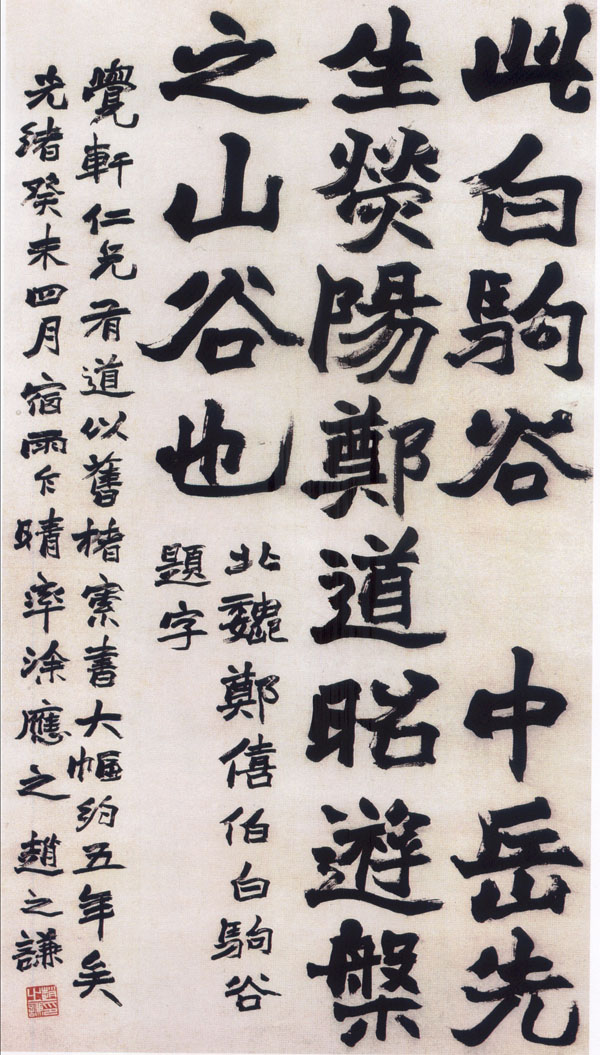 此白駒谷 中岳先
生熒陽鄭道昭遊槃
之山谷也
北魏鄭僖伯白駒谷
題字
覺軒仁兄有道以舊楮索書大幅約五年矣
光緒癸未四月宿雨乍晴率涂應之趙之謙